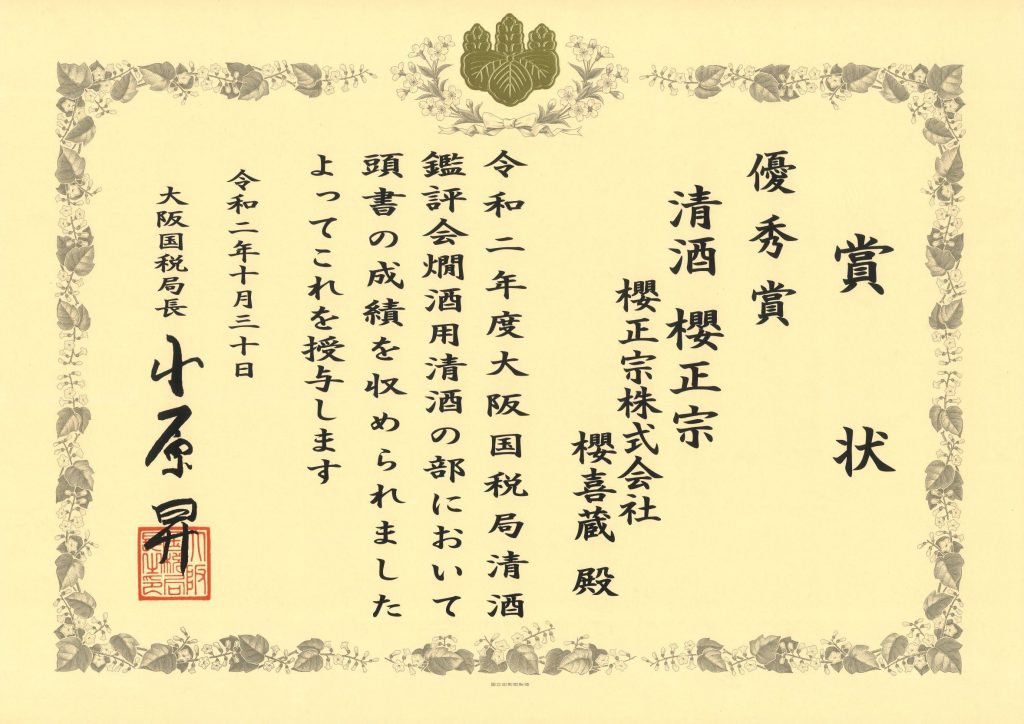 賞状
優秀賞
清酒 櫻正宗
櫻正宗株式会社
櫻喜蔵 殿
令和二年度大阪国税局清酒
鑑評会燗酒用清酒の部において
頭書の成績を収められました
よってこれを授与します
令和二年十月三十日
大阪国税局長 小原昇